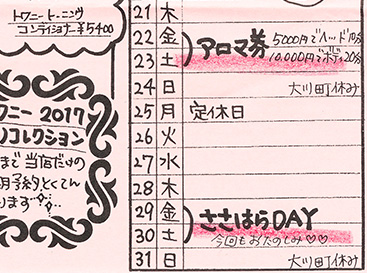 トワニートーニング
コンディショナー¥5400
ワニー 2017
ノコレクション
まで 当店だけの
月予約とくてん
ります
21 木
22 金
アロマ券 5000円でヘッド10分
23 土
10,000円でボディ20分
24 日 大川町休み
25 月 定休日
26 火
27 水
28 木
29 金
ささはらDAY
30 土
今回もおたのしみ♡♡
31 日 大川町休み